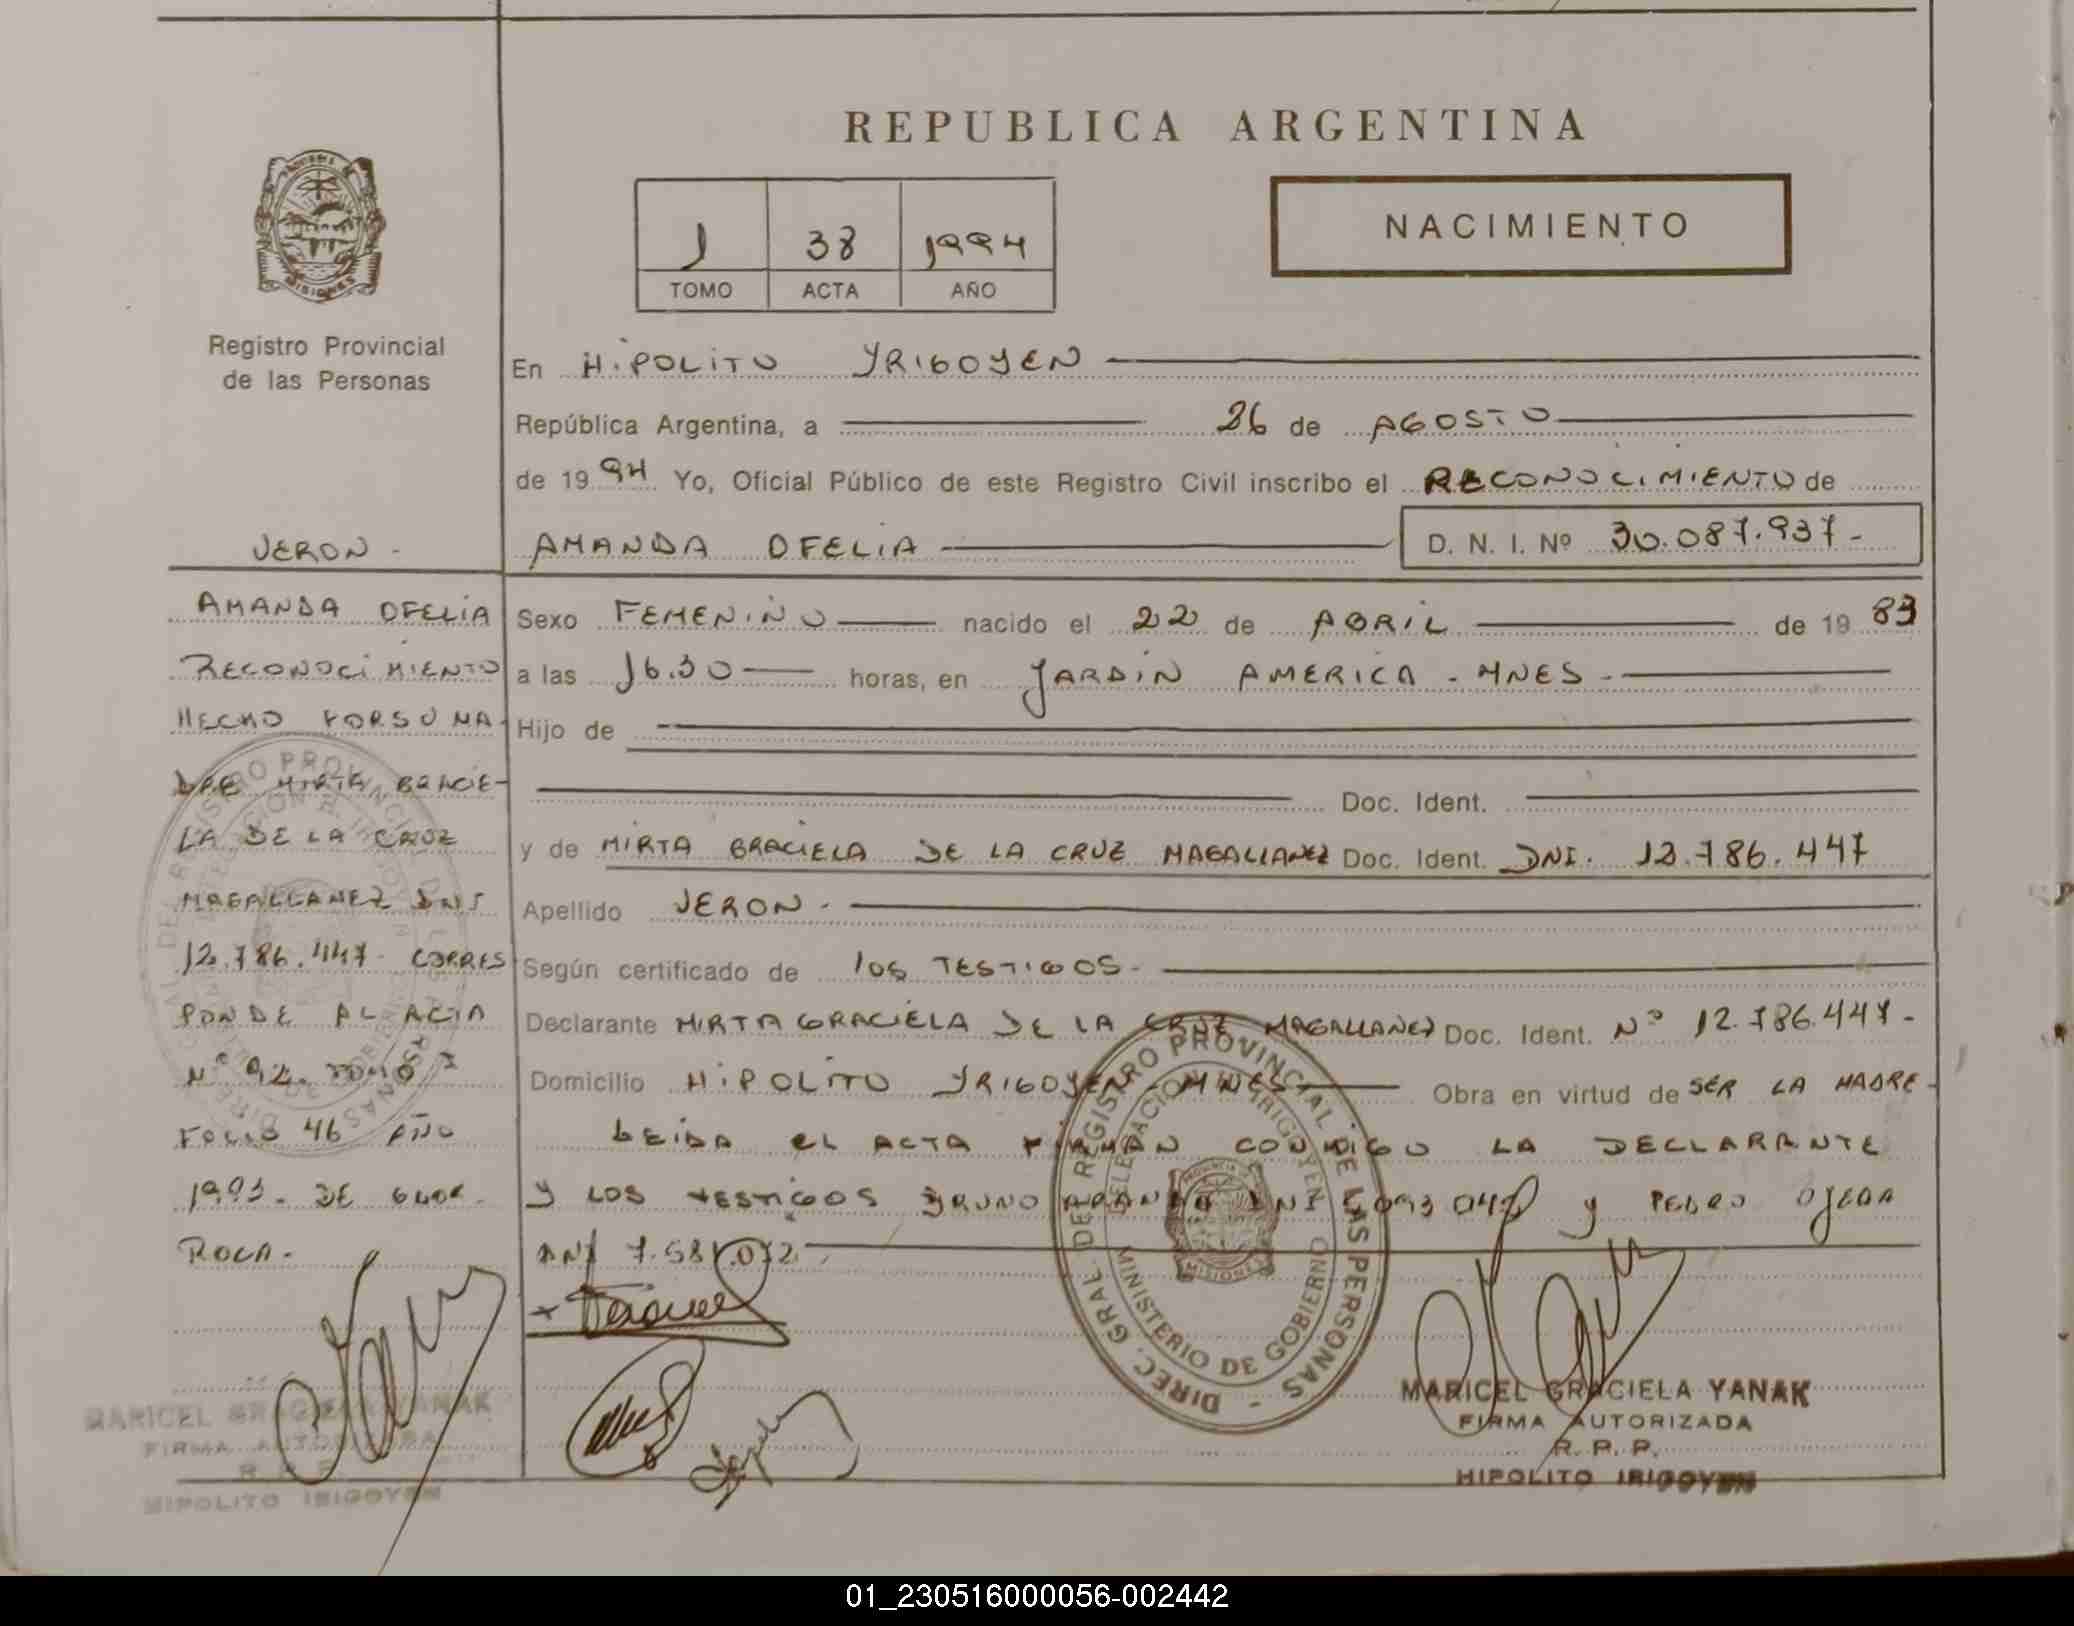 REPUBLICA ARGENTINA
NACIMIENTO
1 38 1994
TOMO ACTA AÑO
MISIONES
Registro Provincial
de las Personas
En HIPOLITO YRIGOYEN
República Argentina, a 26 de AGOSTO
de 1994 Yo, Oficial Público de este Registro Civil inscribo el RECONOCIMIENTO de
AMANDA OFELIA D. N. I. Nº 30.087.937-
Sexo FEMENINO nacido el 22 de ABRIL de 1983
a las 16.30 horas, en JARDIN AMERICA - MNES -
Hijo de
Doc. Ident.
y de MIRTA GRACIELA DE LA CRUZ MAGALLANEZ Doc. Ident. DNI. 12.786.447
Apellido VERON -
Según certificado de los TESTIGOS -
Declarante MIRTA GRACIELA DE LA CRUZ MAGALLANEZ Doc. Ident. Nº 12.786.447-
Domicilio HIPOLITO YRIGOYEN - MNES - Obra en virtud de SER LA MADRE -
LEIDA EL ACTA FIRMAN CONMIGO LA DECLARANTE
Y LOS TESTIGOS BRUNO DNI y PEDRO OJEDA
DNI 7.581.072
VERON -
AMANDA OFELIA
RECONOCIMIENTO
HECHO POR SU MA-
DRE MIRTA GRACIE-
LA DE LA CRUZ
MAGALLANEZ DNI
12.786.447- CORRES
PONDE AL ACTA
Nº 92. TOMO I
FOLIO 46 AÑO
1993. DE GDOR.
ROCA -
DIREC. GRAL. DEL REGISTRO PROVINCIAL DE LAS PERSONAS -
DELEGACION H. IRIGOYEN
MINISTERIO DE GOBIERNO
MISIONES
MARICEL GRACIELA YANAK
FIRMA AUTORIZADA
R. P. P.
HIPOLITO IRIGOYEN
MARICEL GRACIELA YANAK
FIRMA AUTORIZADA
R. P. P.
HIPOLITO IRIGOYEN
01_230516000056-002442